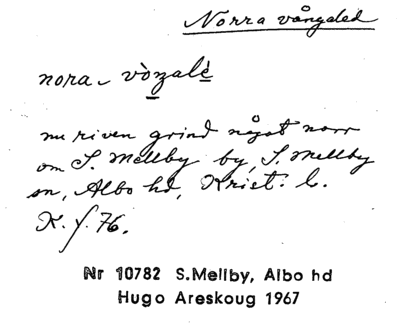 Norra vångaled
nora vòŋalè
nu riven grind något norr
om S. Mellby by, S. Mellby
sn, Albo hd, Krist. l.
K. f. 76.
Nr 10782 S.Mellby, Albo hd
Hugo Areskoug 1967